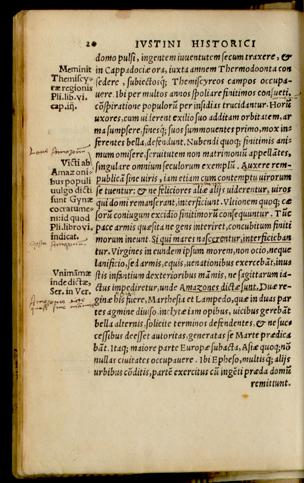 20 IVSTINI HISTORICI
domo pulsi, ingentem iuuentutem secum traxere, &
in Cappadociæ ora, iuxta amnem Thermodoonta con
sedere, subiectosq; Themiscyreos campos occupa-
uere. Ibi per multos annos spoliare finitimos consueti,
cōspiratione populorū per insidias trucidantur. Horū
uxores, cum ui ierent exilio suo additam orbitatem, ar
ma sumpsere, finesq; suos summouentes primo, mox in
ferentes bella, defendunt. Nubendi quoq; finitimis ani-
mum omisere, seruitutem non matrimoniū appellātes,
singulare omnium seculorum exemplū. Auxere rem-
publicā sine uiris, iam etiam cum contemptu uirorum
se tuentur: & ne feliciores aliæ alijs uiderentur, uiros
qui domi remanserant, interficiunt. Vltionem quoq; cæ
sorū coniugum excidio finitimorū consequuntur. Tūc
pace armis quæsita ne gens interiret, concubitum finiti
morum ineunt. Si qui mares nascerentur, interficieban
tur. Virgines in eundem ipsum morem, non ocio, neque
lanificio, sed armis, equis, uenationibus exercebāt, inus
stis infantium dexterioribus māmis, ne sagittarum ia-
ctus impediretur, unde Amazones dictæ sunt. Duæ re-
ginæ his fuere, Marthesia et Lampedo, quæ in duas par
tes agmine diuiso, inclytæ iam opibus, uicibus gerebāt
bella alternis, solicite terminos defendentes, & ne suc-
cessibus deesset autoritas, generatas se Marte prædica
bāt. Itaq; maiore parte Europæ subacta, Asiæ quoq; nō
nullas ciuitates occupauere. Ibi Epheso, multisq; alijs
urbibus cōditis, partē exercitus cū ingēti præda domū
remittunt.
Meminit
Themiscy-
ræ regionis
Pli. lib. vi.
cap. iij.
Victi ab
Amazoni-
bus populi
vulgo dicti
sunt Gynæ
cocratume-
ni: id quod
Pli. libro vi.
indicat.
Vnimāmæ
inde dictæ,
Ser. in Ver.